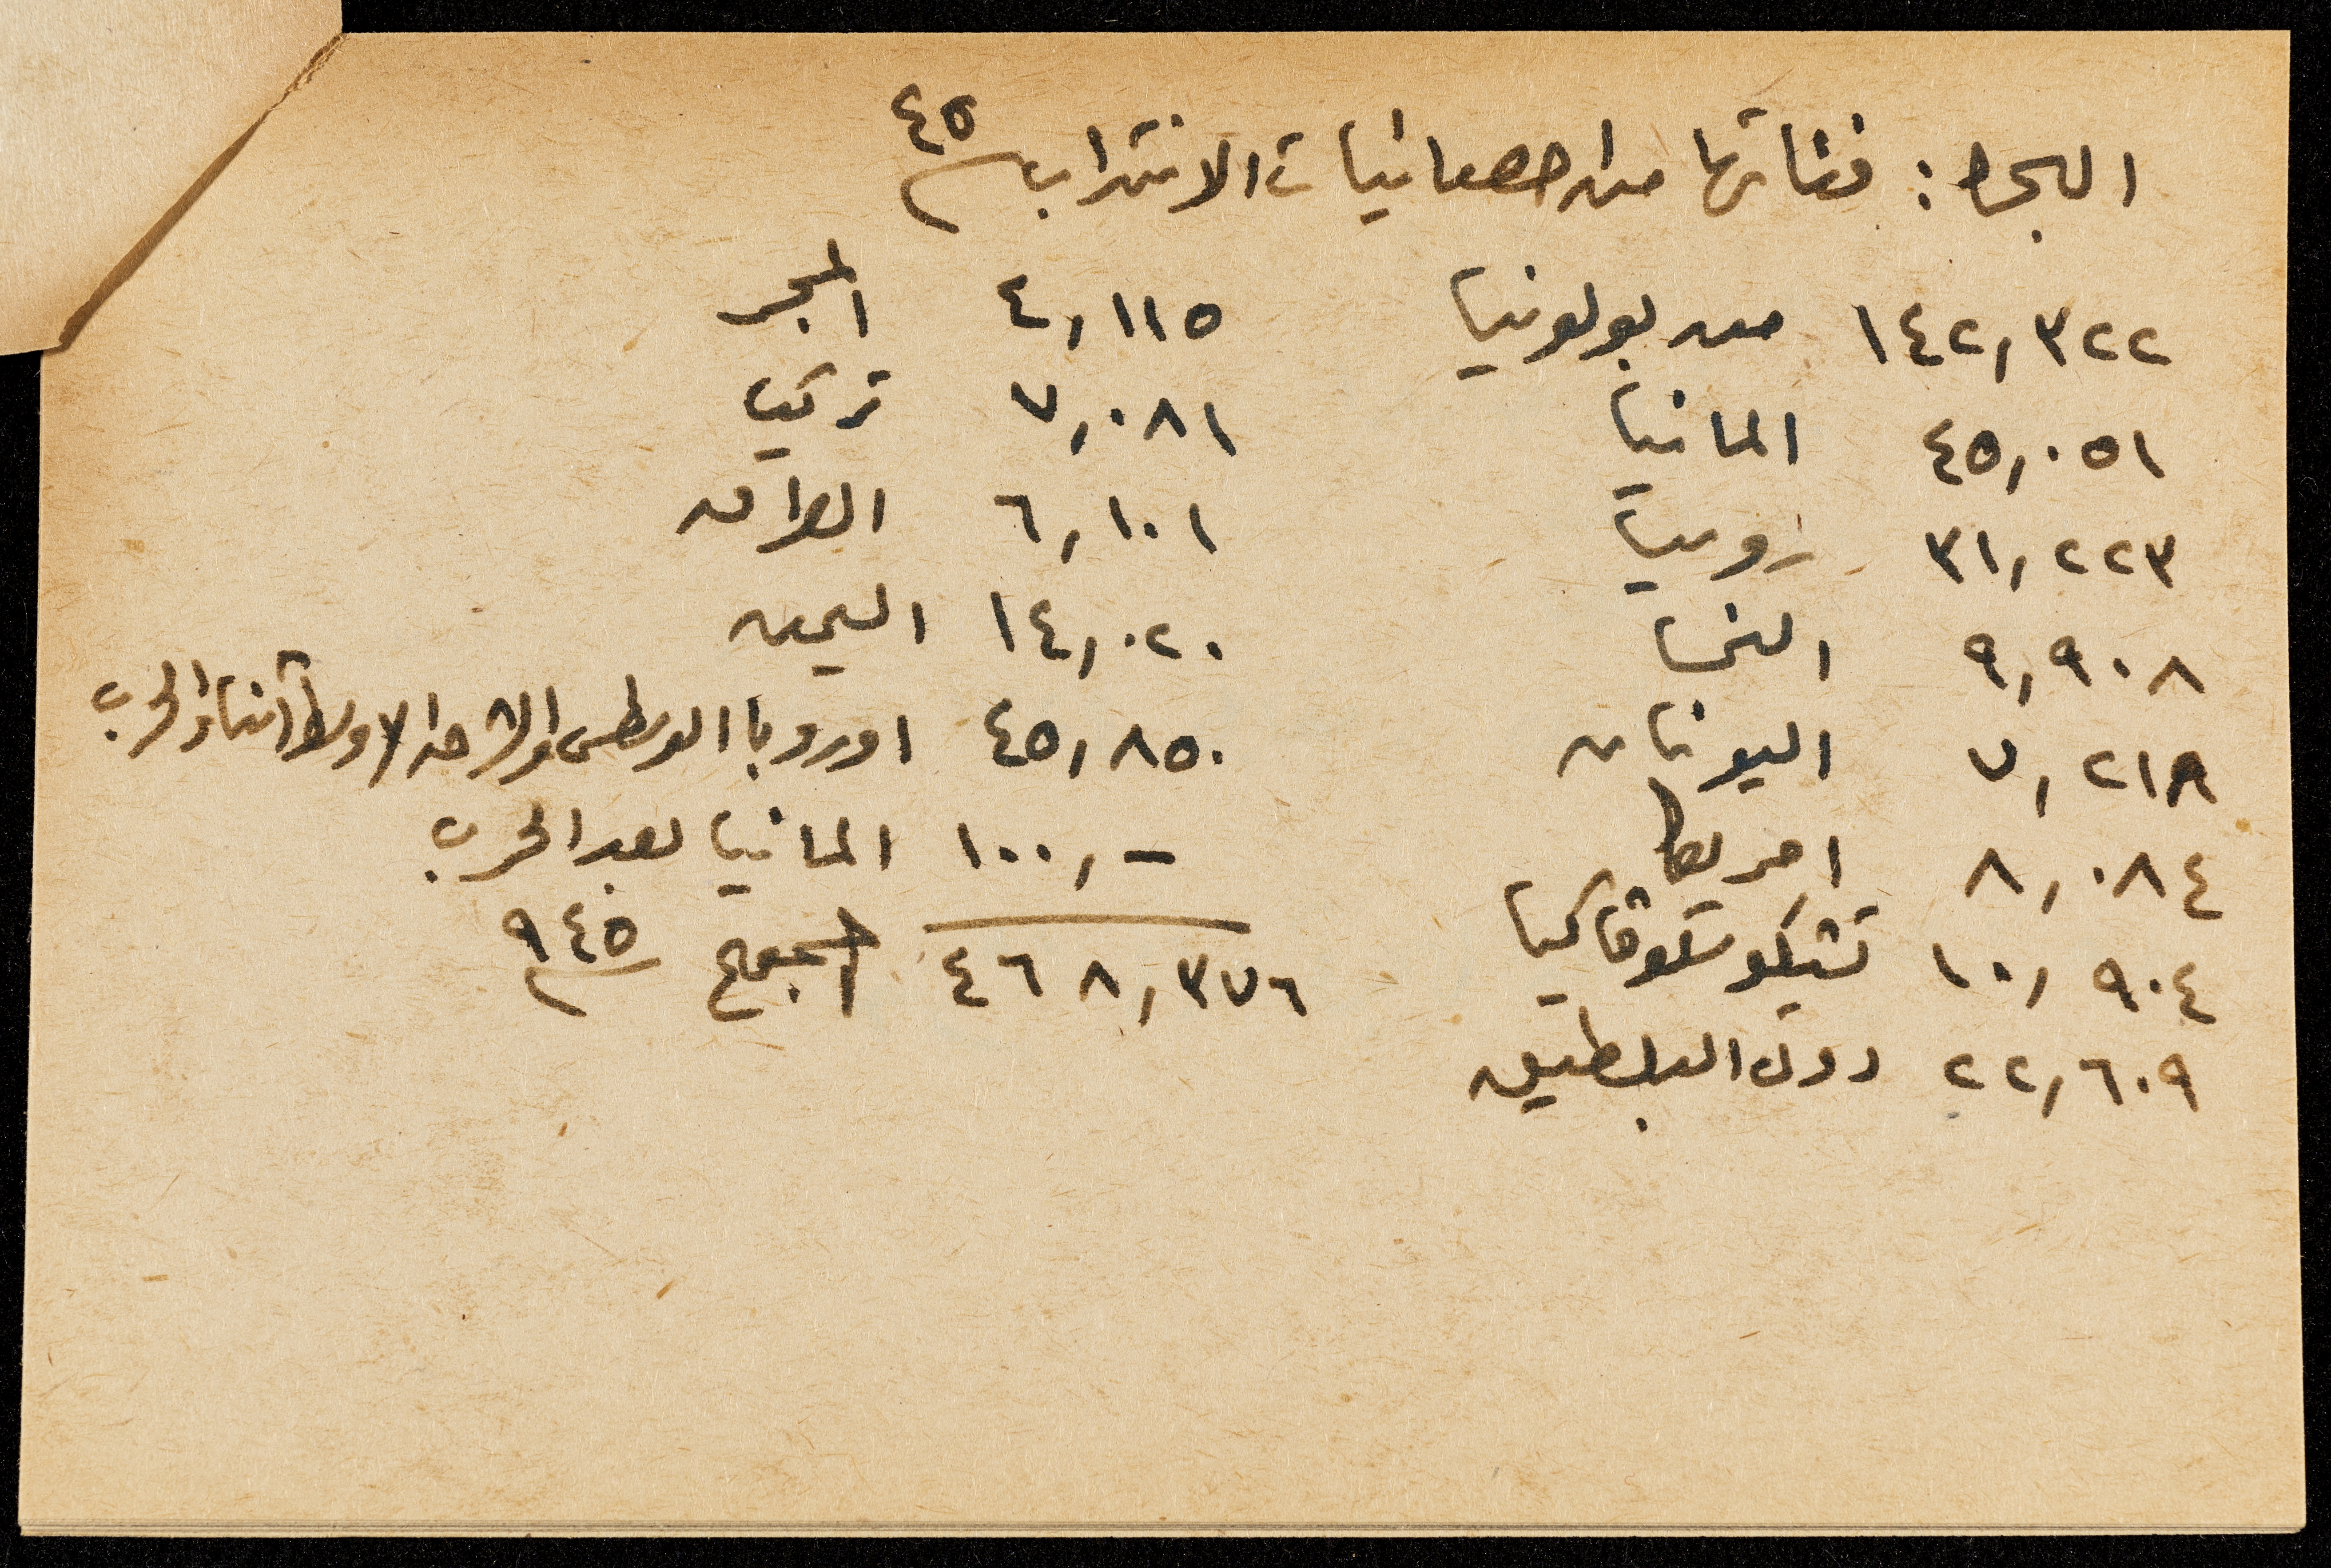 الهجرة : فئاتها من احصائيات الانتداب سنة ٤٥
١٤٢,٣٢٢ من بولونيا
٤٥,٠٥١ المانيا
٣١,٢٢٣ روسيا
٩,٩٠٨ النمسا
٧,٢١٨ اليونان
٨,٠٨٤ امريكا
١٠,٩٠٤ تشيكوسلوفاكيا
٢٢,٦٠٩ دول البلطيق
٤,١١٥ المجر
٧,٠٨١ تركيا
٦,١٠١ العراق
١٤,٠٢٠ اليمن
٤٥,٨٥٠ اوروبا الوسطى والشرق الاوسط أثناء الحرب
١٠٠,- المانيا بعد الحرب
٤٦٨,٣٧٦ المجموع سنة ٩٤٥